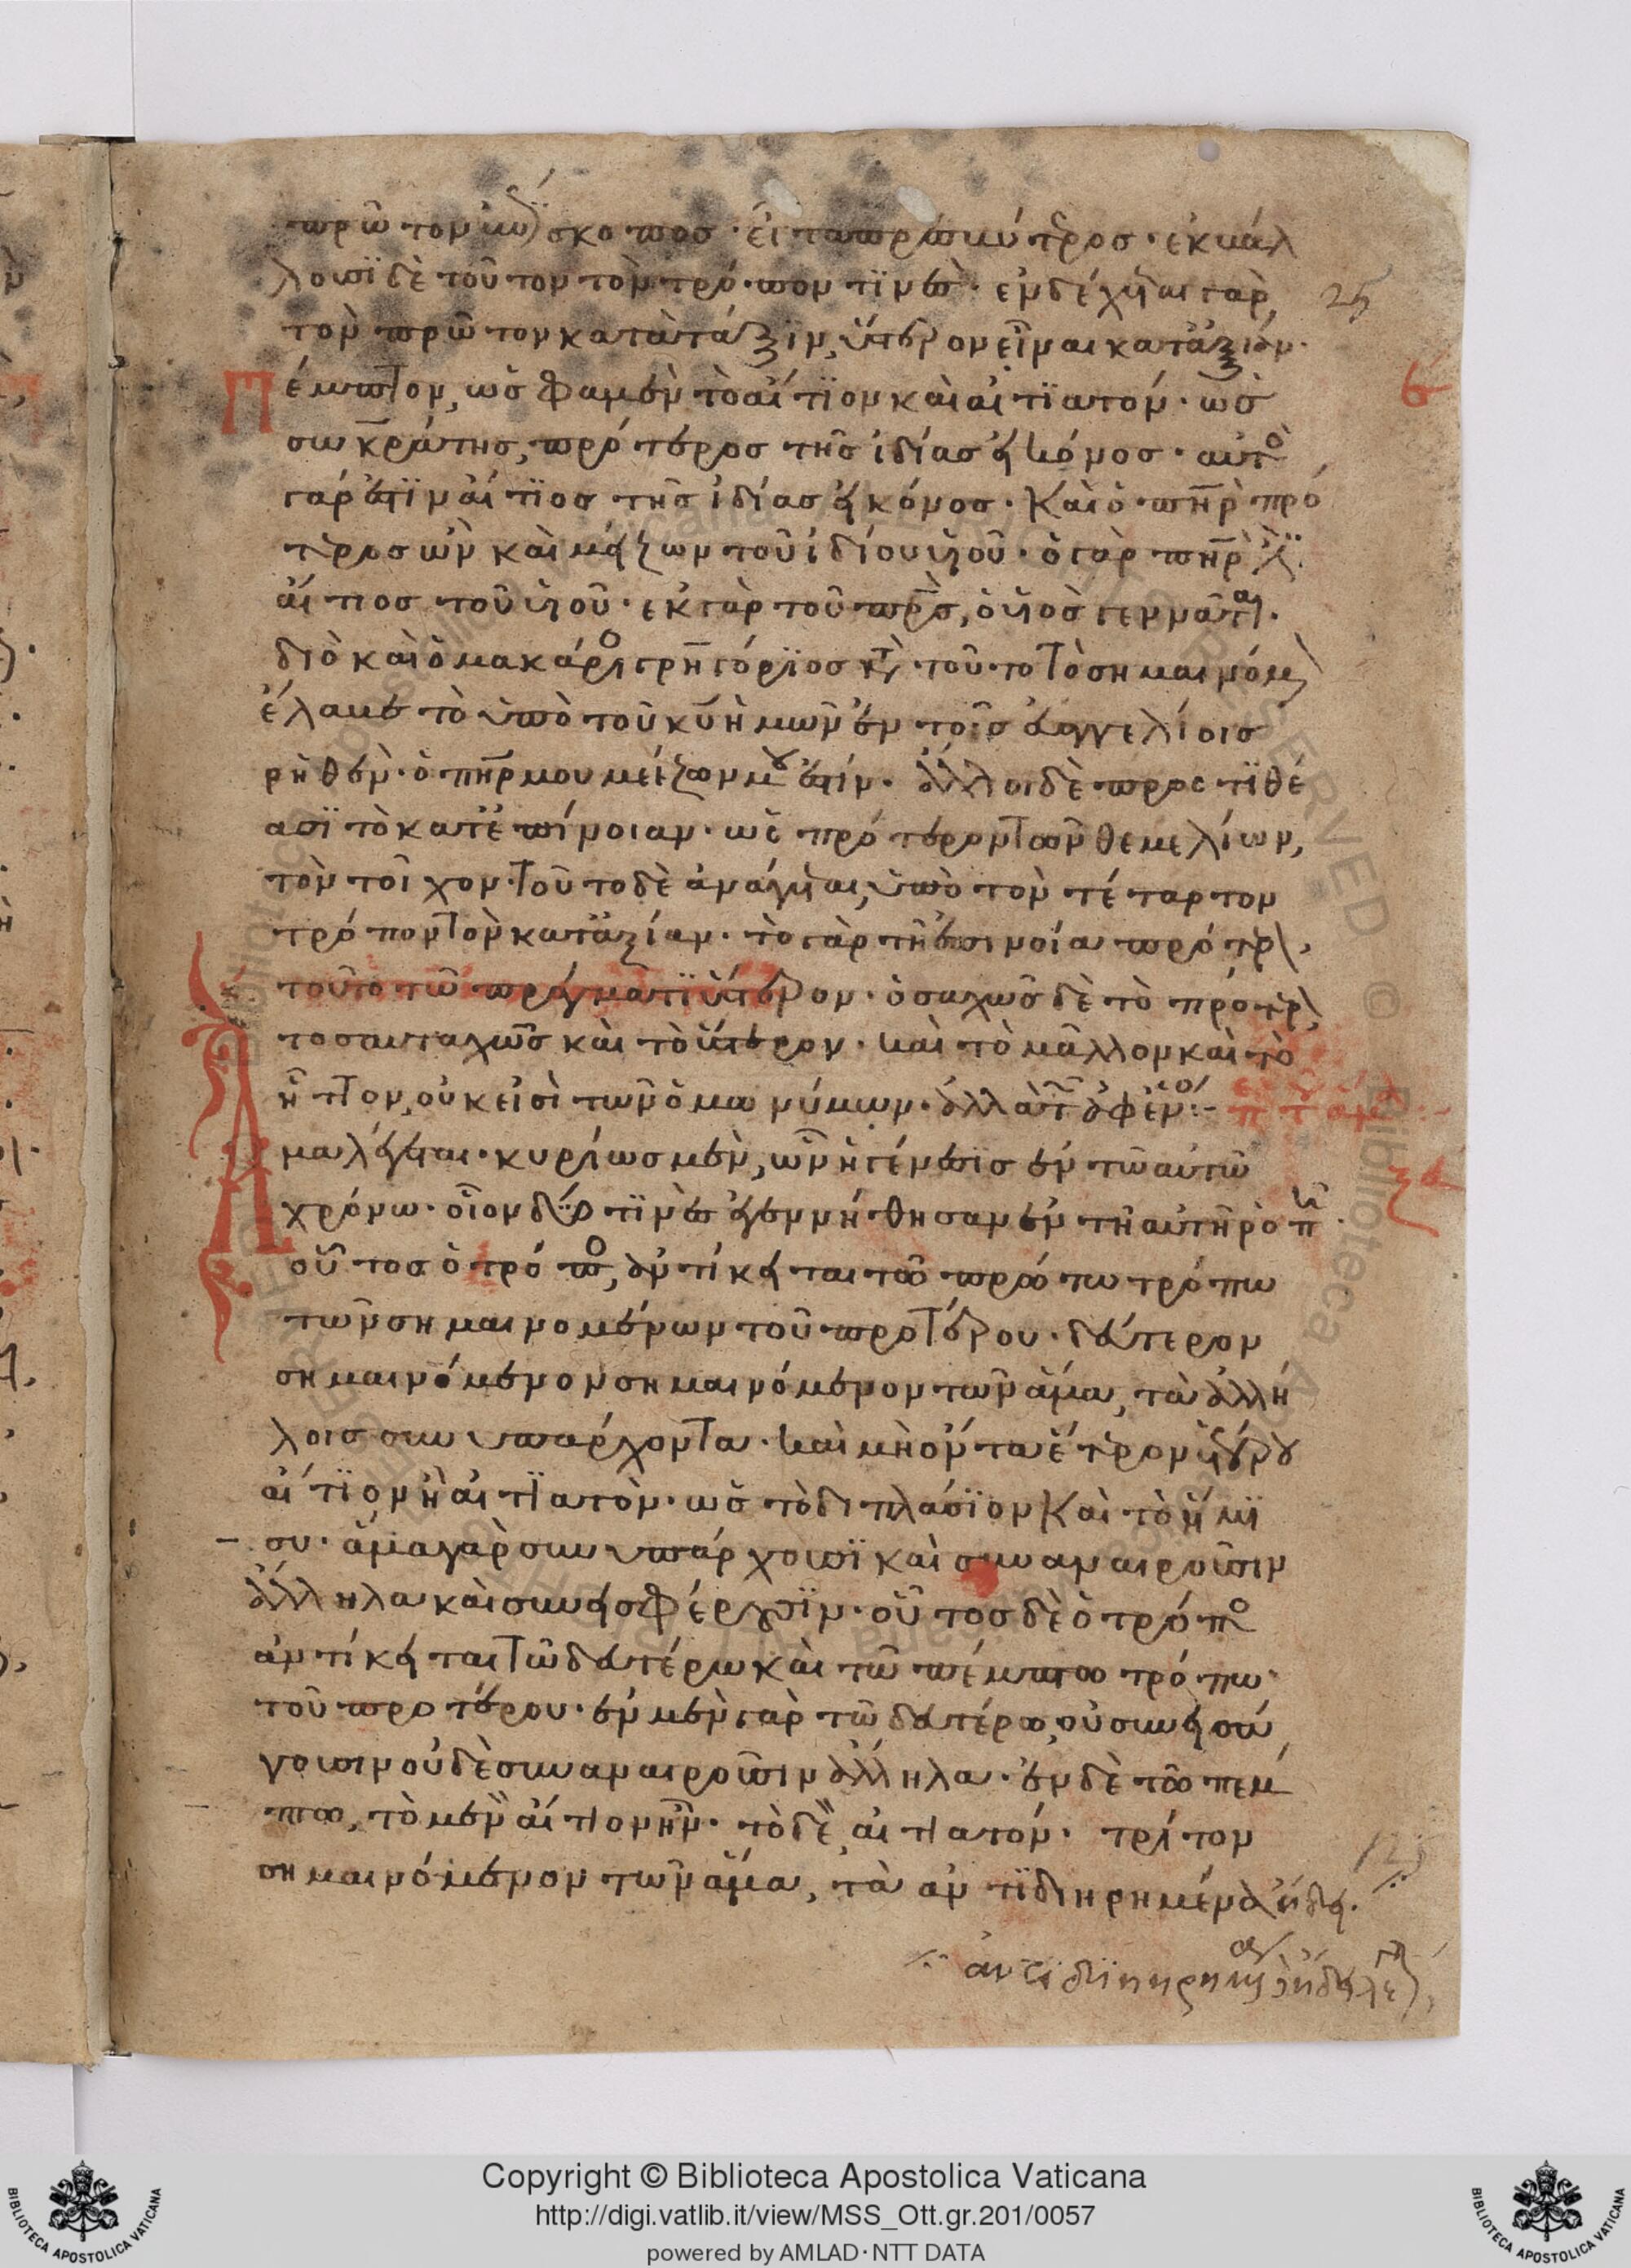 πρῶτον ἐπίσκοπος· εἶτα πρεσβύτερος· ἐκβάλ
λουσι δὲ τοῦτον τὸν τρόπον τινές· ἐνδέχεται γὰρ
25
τὸν πρῶτον κατὰ τάξιν, ὕστερον εἶναι κατ' ἀξίαν·
Πέμπτον, ὡς φαμὲν τὸ αἴτιον καὶ αἰτιατόν· ὡς
σωκράτης, πρότερος τῆς ἰδίας εἰκόνος· αὐτὸς
γάρ ἐστιν αἴτιος τῆς ἰδίας εἰκόνος· Καὶ ὁ πηρ πρό
τερος ὢν καὶ μείζων τοῦ ἰδίου υἱοῦ· ὁ γὰρ πηρ
αἴτιος τοῦ υἱοῦ· ἐκ γὰρ τοῦ πρς, ὁ υἱὸς γεννᾶται·
διὸ καὶ ὁ μακάριος γρηγόριος κατὰ τοῦτο τὸ σημαινόμενον
ἔλαβε τὸ ὑπὸ τοῦ κυ ἡμῶν ἐν τοῖς εὐαγγελίοις
ρηθὲν· ὁ πηρ μου μείζων μου ἐστίν· ἄλλοι δὲ προστιθέ
ασι τὸ κατ' ἐπίνοιαν· ὡς πρότερον τῶν θεμελίων,
τὸν τοῖχον· Τοῦτο δὲ ἀνάγεται, ὑπὸ τὸν τέταρτον
τρόπον τὸν κατ' ἀξίαν· τὸ γὰρ τῇ ἐπινοία πρότερον,
τοῦτο τῶ πράγματι ὕστερον· ὁσαχῶς δὲ τὸ πρότερον,
τοσαυταχῶς καὶ τὸ ὕστερον· καὶ τὸ μᾶλλον καὶ τὸ
ἧττον, οὐκ εἰσὶ τῶν ὁμωνύμων· ἀλλὰ τῶν ἀφ' ἑνός:–
Ἅμα λέγεται· κυρίως μὲν, ὧν ἡ γένεσις ἐν τῶ αὐτῶ
χρόνω· οἷον δύο τινὲς ἐγεννήθησαν ἐν τῇ αὐτῇ ῥοπῇ·
οὗτος ὁ τρόπος, ἀντίκειται τῶ πρώτω τρόπω
τῶν σημαινομένων τοῦ προτέρου· δεύτερον
σημαινόμενον σημαινόμενον τῶν ἅμα, τὰ ἀλλή
λοις συνυπάρχοντα· καὶ μὴ ὄντα ἕτερον ἑτέρου
αἴτιον ἢ αἰτιατὸν· ὡς τὸ διπλάσιον Καὶ τὸ ἥμι
συ· ἅμα γὰρ συνυπάρχουσι καὶ συναναιροῦσιν
ἄλληλα καὶ συνεισφέρουσιν· οὗτος δὲ ὁ τρόπος
ἀντίκειται τῶ δευτέρω καὶ τῶ πέμπτω τρόπω·
τοῦ προτέρου· ἐν μὲν γὰρ τῶ δευτέρω, οὐ συνεισά
γουσιν οὐδὲ συναναιροῦσιν ἄλληλα· ἐν δὲ τῶ πέμ
πτω, τὸ μὲν αἴτιον ἦν· τὸ δὲ αἰτιατόν· τρίτον
σημαινόμενον τῶν ἅμα, τὰ ἀντιδιηρημένα εἴδη·
Copyright © Biblioteca Apostolica Vaticana
http://digi.vatlib.it/view/MSS_Ott.gr.201/0057
powered by AMLAD·NTT DATA
BIBLIOTECA APOSTOLICA VATICANA
BIBLIOTECA APOSTOLICA VATICANA